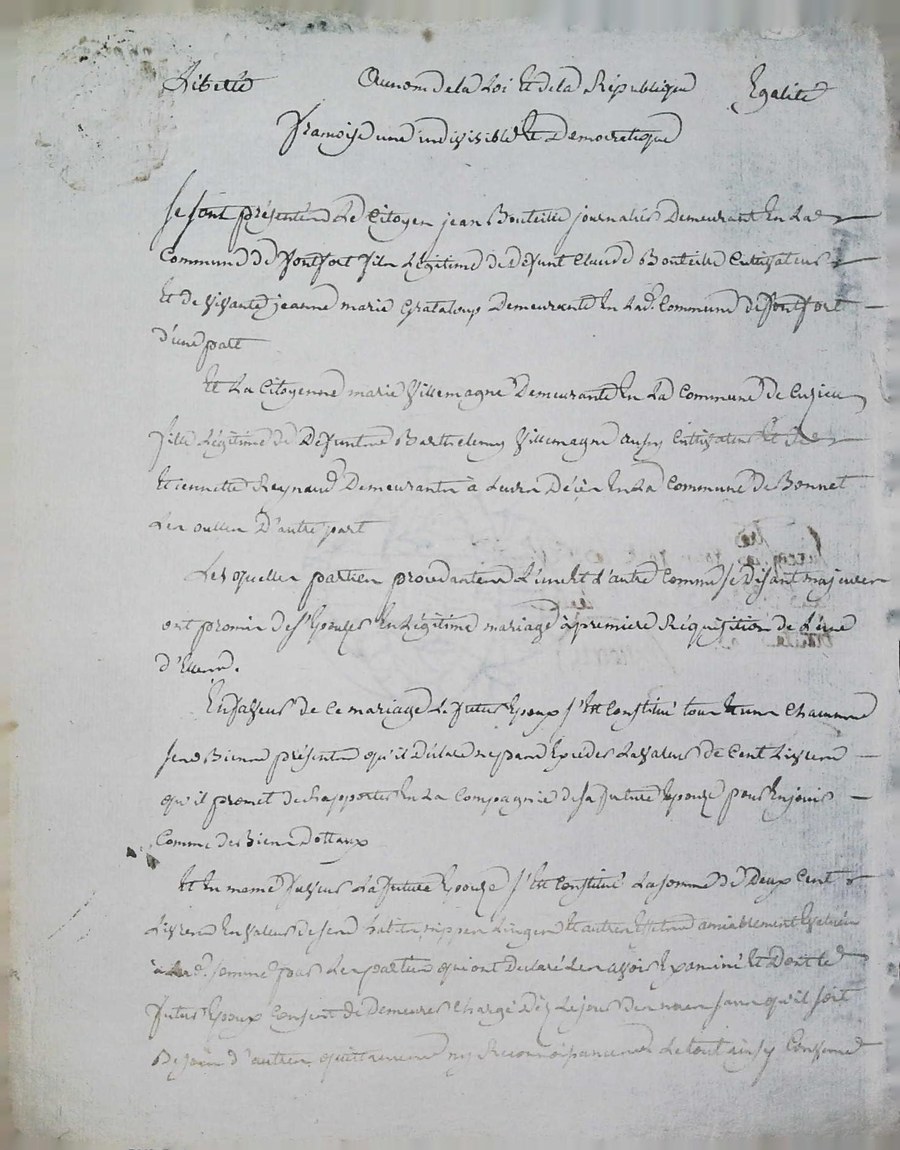 Liberté Au nom de la Loi Et de la République Egalité
françoise une indivisible Et Democratique
Se sont présentés Le Citoyen jean Bouteille journalier Demeurant En La
Commune de fontfort fils Légitime de défunt Claude Bouteille Cultivateur
Et de vivante jeanne marie Grataloup Demeurante En Lad. Commune de fontfort
d'une part
Et La Citoyenne marie Villemagne Demeurante En La Commune de Cuzieu
fille Légitime de Defunt Barthelemy Villemagne aussy Cultivateur Et de
Reynaud Demeurants à Leurs Décès En La Commune de Bonnet
Les oulles D'autre part
Lesquelles parties procedantes L'une Et L'autre Comme se disant majeures
ont promis de s'Epouser En Légitime mariage à première Réquisition de L'une
d'Elles.
En faveur de Ce mariage Le futur Epoux s'Est Constitué tous Et uns Chacuns
ses Biens présents qu'il déclare ne pas Exceder La valeur de Cent Livres
qu'il promet de Rapporter En La Compagnie de sa future Epouze pour En jouir
Comme de Biens Dottaux
Et En meme faveur La future Epouze s'Est Constitué La somme de Deux Cent
Livres En valeur de ses habits, nippes Linges Et autres Effets amiablement Evalués
à Lad. somme par Les parties qui ont Declaré Les avoir Examiné Et Dont le
futur Epoux Consent de Demeurer Chargé Dès Le jour des noces sans qu'il soit
Besoin d'autres quittances ny Reconnoissances Le tout ainsy Convenu